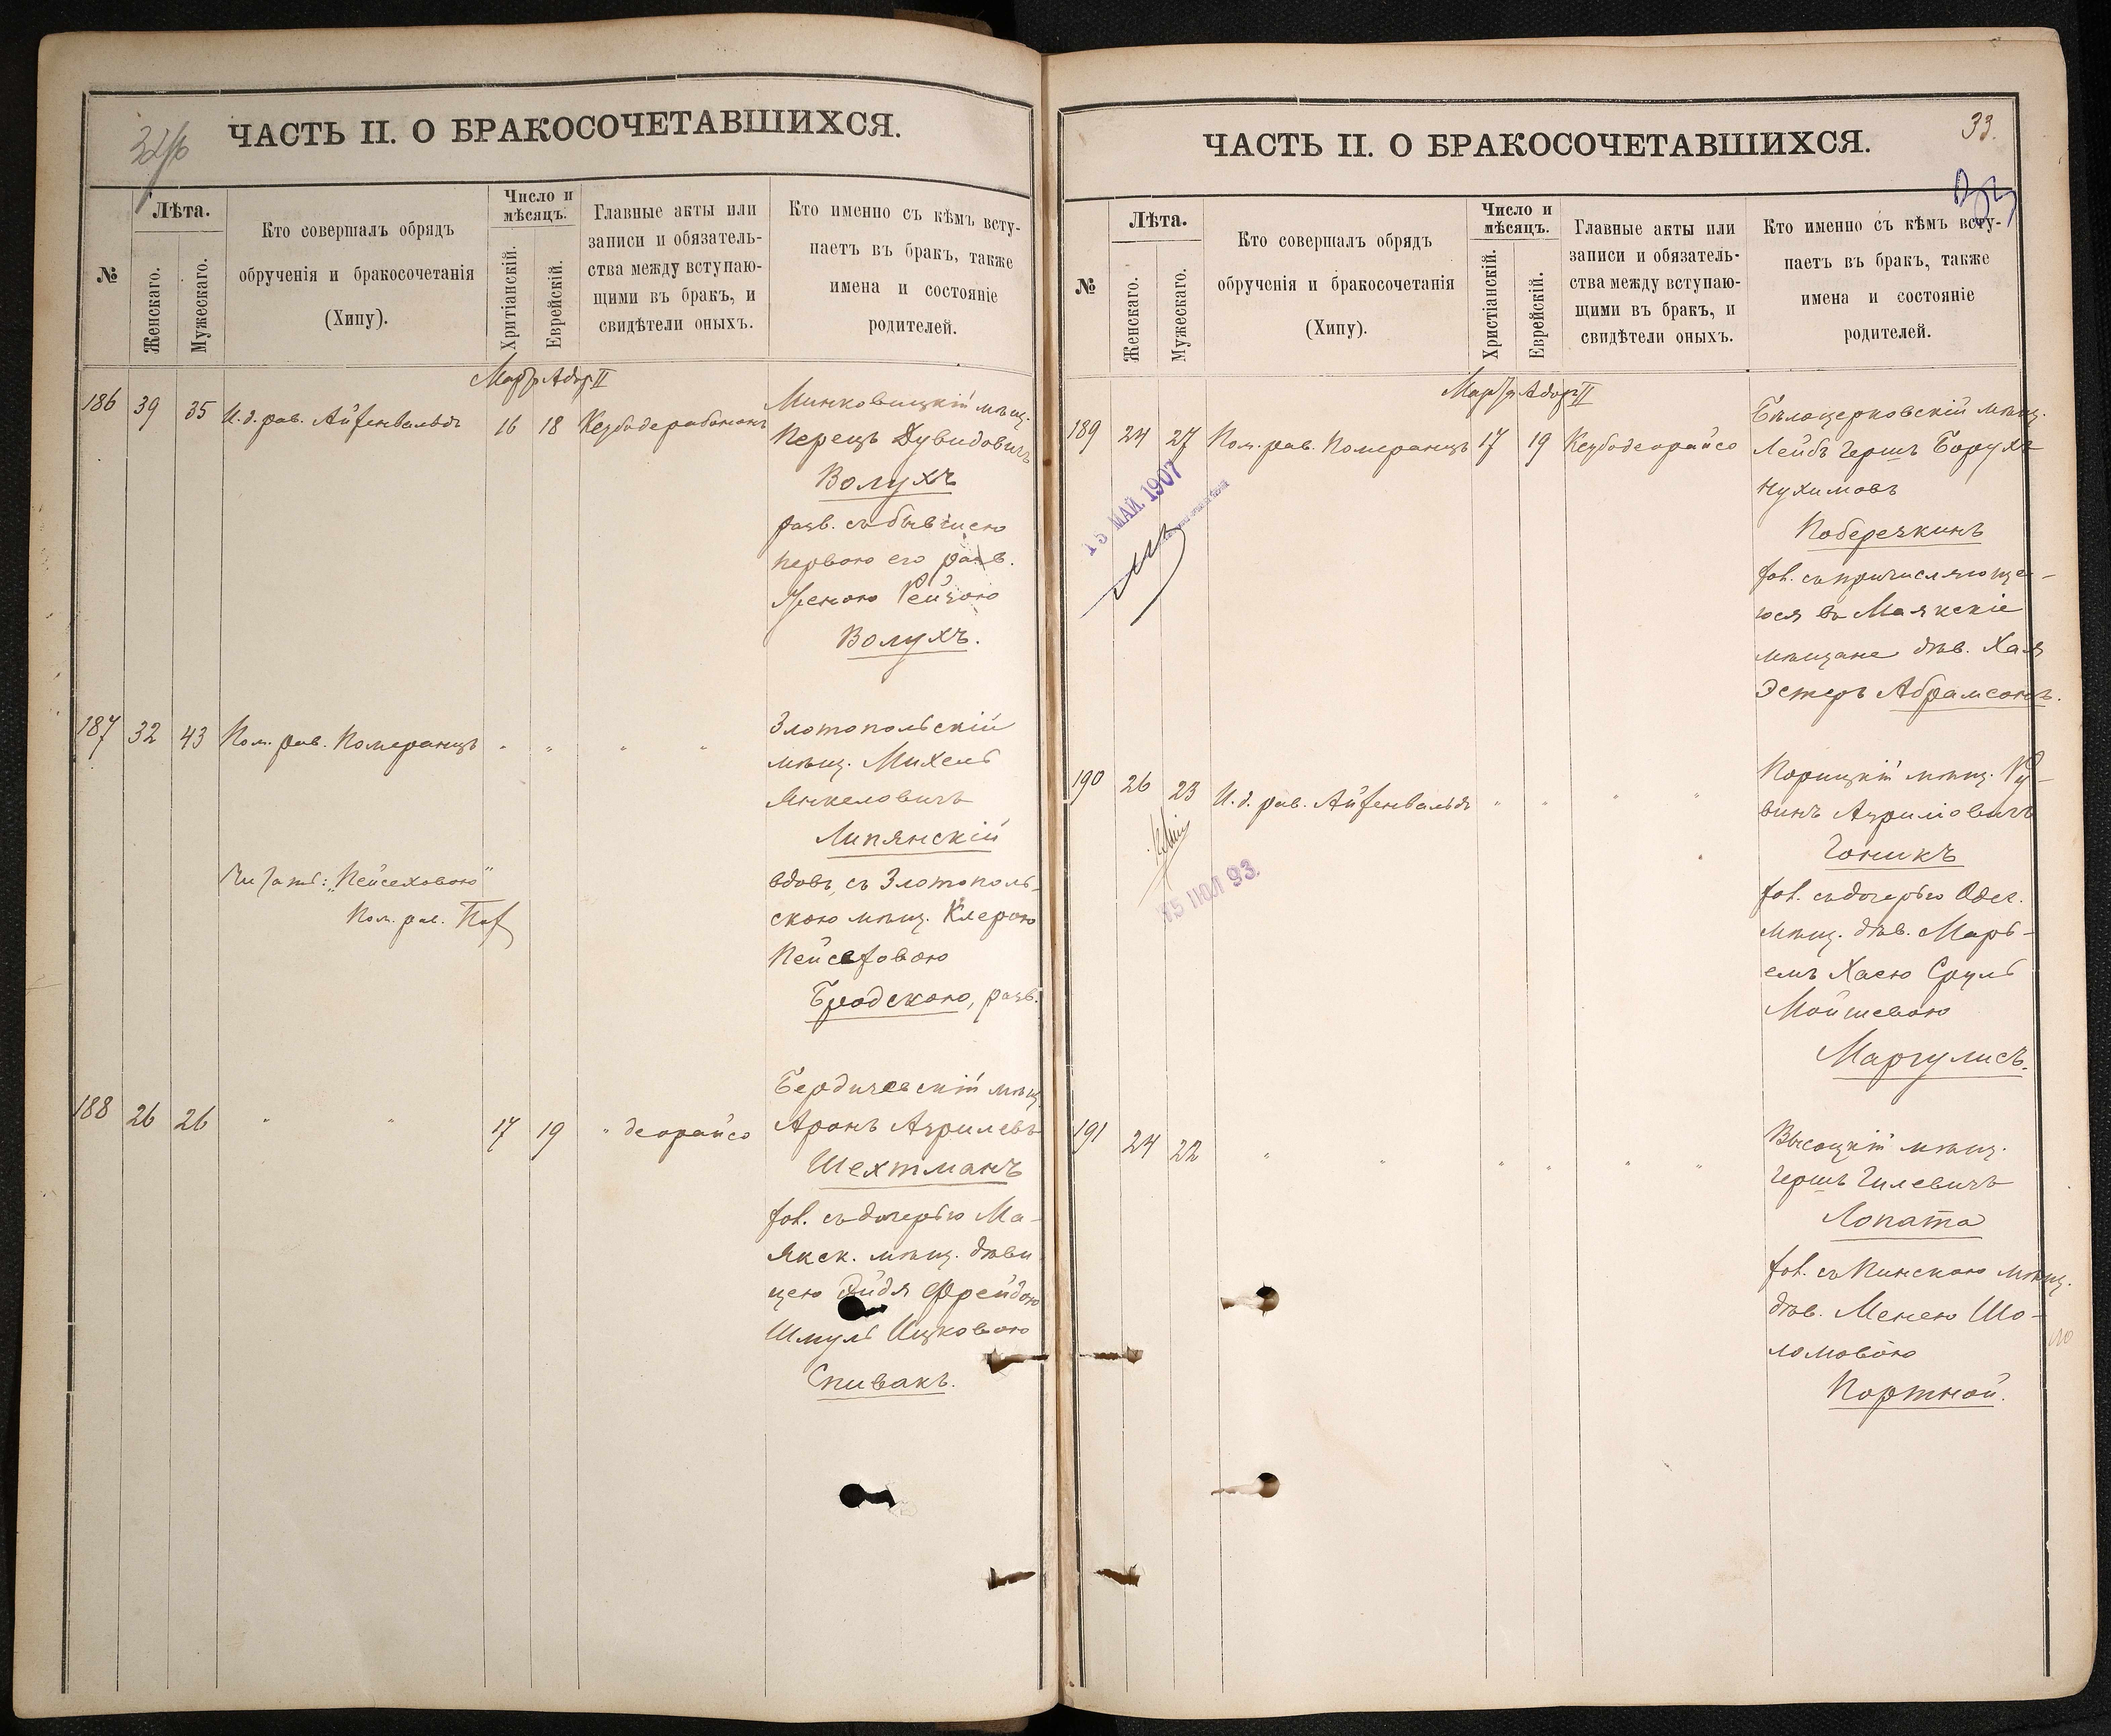 32/об
ЧАСТЬ II. О БРАКОСОЧЕТАВШИХСЯ.
№
Лѣта.
Женскаго.
Мужескаго.
Кто совершалъ обрядъ
обрученія и бракосочетанія
(Хипу).
Число и
мѣсяцъ.
Хритіанскій.
Еврейскій.
Главные акты или
записи и обязатель-
ства между вступаю-
щими въ бракъ, и
свидѣтели оныхъ.
Кто именно съ кѣмъ всту-
паетъ въ бракъ, также
имена и состояніе
родителей.
Мартъ Адор II
186 39 35 И.д. рав. Айзенвальдъ 16 18 Кезубодерабононъ
Минковицкій мѣщ.
Перецъ Дувидовичъ
Волухъ
разв. съ бывшею
первою его разв.
женою Рейзою
Волухъ.
187 32 43 Пом. рав. Померанцъ " " " "
Злотопольскій
мѣщ. Михель
Янкеловичъ
Липянскій
вдовъ, съ Злотополь-
скою мѣщ. Клерою
Пейсеховою
Бродскою, разв.
Читать: „Пейсеховою"
Пом. рав.
188 26 26 " " 17 19 " деорайсо
Бердичевскій мѣщ.
Аронъ Азрилевъ
Шехтманъ
хол. съ дочерью Ма-
якск. мѣщ. дѣви
цею Эйдя Фрейдою
Шмуль Ицковою
Спивакъ.
33.
ЧАСТЬ II. О БРАКОСОЧЕТАВШИХСЯ.
№
Лѣта.
Женскаго.
Мужескаго.
Кто совершалъ обрядъ
обрученія и бракосочетанія
(Хипу).
Число и
мѣсяцъ.
Христіанскій.
Еврейскій.
Главные акты или
записи и обязатель-
ства между вступаю-
щими въ бракъ, и
свидѣтели оныхъ.
Кто именно съ кѣмъ всту-
паетъ въ бракъ, также
имена и состояніе
родителей.
Мартъ Адор II
189 24 27 Пом. рав. Померанцъ 17 19 Кезубодеорайсо
15 МАЙ. 1907
Бѣлоцерковскій мѣщ.
Лейбъ Гершъ Борухъ
Нухимовъ
Побережкинъ
хол. съ причисляюще-
юся въ Маякскіе
мѣщане дѣв. Хая
Эстеръ Абрамсонъ.
190 26 23 И.д. рав. Айзенвальдъ " " " "
15 ІЮЛ 93.
Корицкій мѣщ. Ру-
винъ Азриліовичъ
Гоникъ
хол. съ дочерью Одес.
мѣщ. дѣв. Марь-
емъ Хаею Сруль
Мойшевою
Маргулисъ.
191 24 22 " " " " " "
Высоцкій мѣщ.
Гершъ Гилевичъ
Лопата
хол. съ Пинскою мѣщ.
дѣв. Менею Шо-
ломовою
Портной.